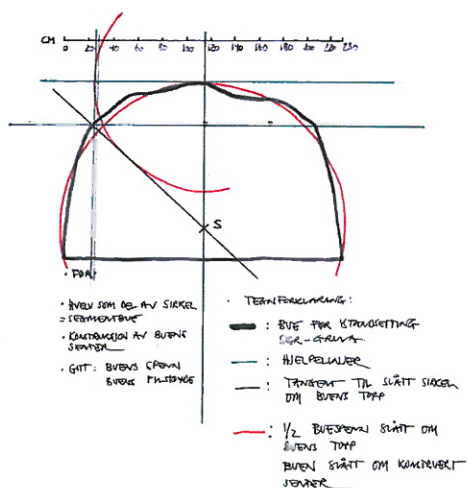 CM
0 20 40 60 80 100 120 140 160 180 200 230
S
· FORM
· HVELV SOM DEL AV SIRKEL
= SEGMENTBUE
· KONSTRUKSJON AV BUENS
SENTER
· GITT: BUENS SPENN
BUENS PILHØYDE
· TEGNFORKLARING:
: BUE FØR ISTANDSETTING
: HJELPELINJER
: TANGENT TIL SLÅTT SIRKEL
OM BUENS TOPP
: 1/2 BUESPENN SLÅTT OM
BUENS TOPP
BUEN SLÅTT OM KONSTRUERT
SENTER